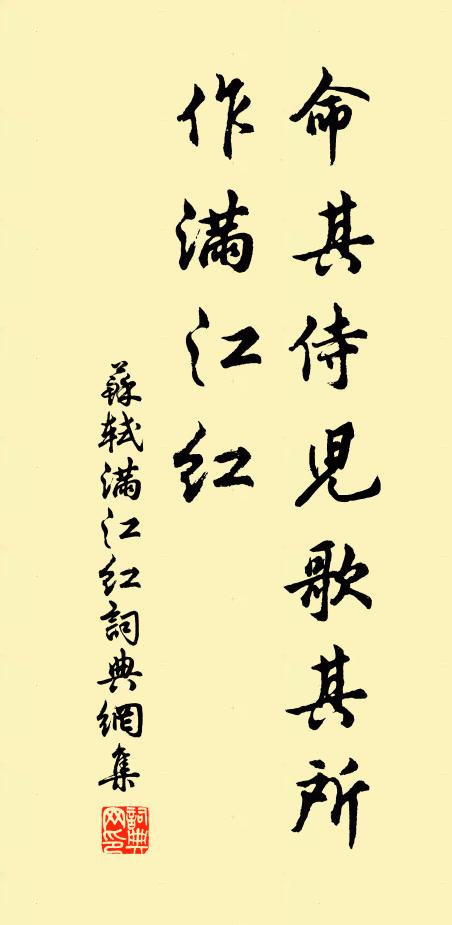 命其侍兒歌其所
作滿江紅
蘇軾滿江紅詞典網集
詞典網印